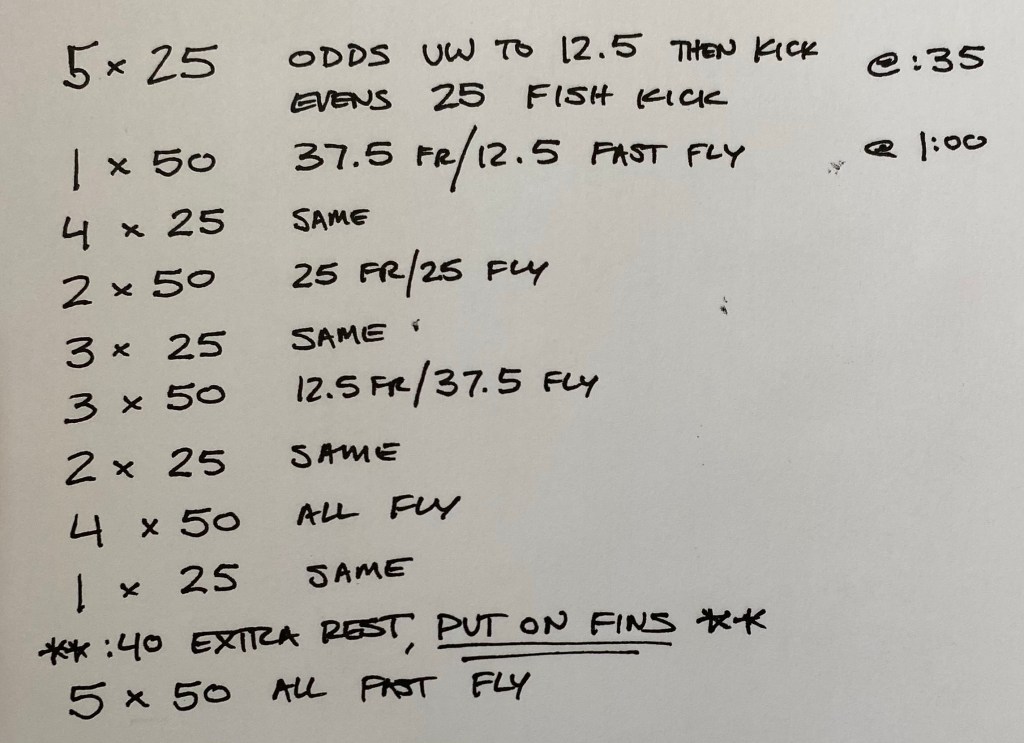 5 x 25 ODDS UW TO 12.5 THEN KICK @ :35
EVENS 25 FISH KICK
1 x 50 37.5 FR/12.5 FAST FLY @ 1:00
4 x 25 SAME
2 x 50 25 FR/25 FLY
3 x 25 SAME
3 x 50 12.5 FR/37.5 FLY
2 x 25 SAME
4 x 50 ALL FLY
1 x 25 SAME
** :40 EXTRA REST, PUT ON FINS **
5 x 50 ALL FAST FLY